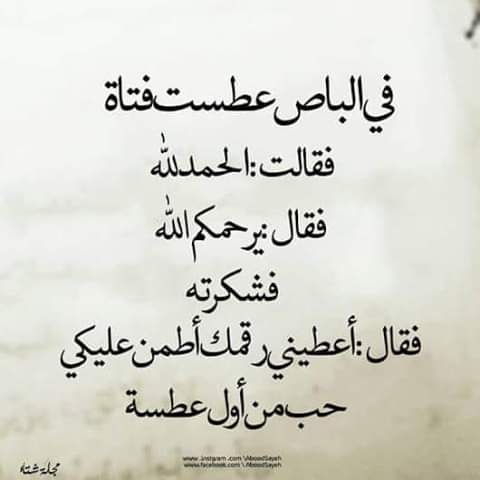 في الباص عطست فتاة
فقالت : الحمدلله
فقال : يرحمكم الله
فشكرته
فقال : أعطيني رقمك أطمن عليكي
حب من أول عطسة
www. .Instgram .com \AboodSayeh
www.facebook.com \AboodSayeh
مجلة شتاء